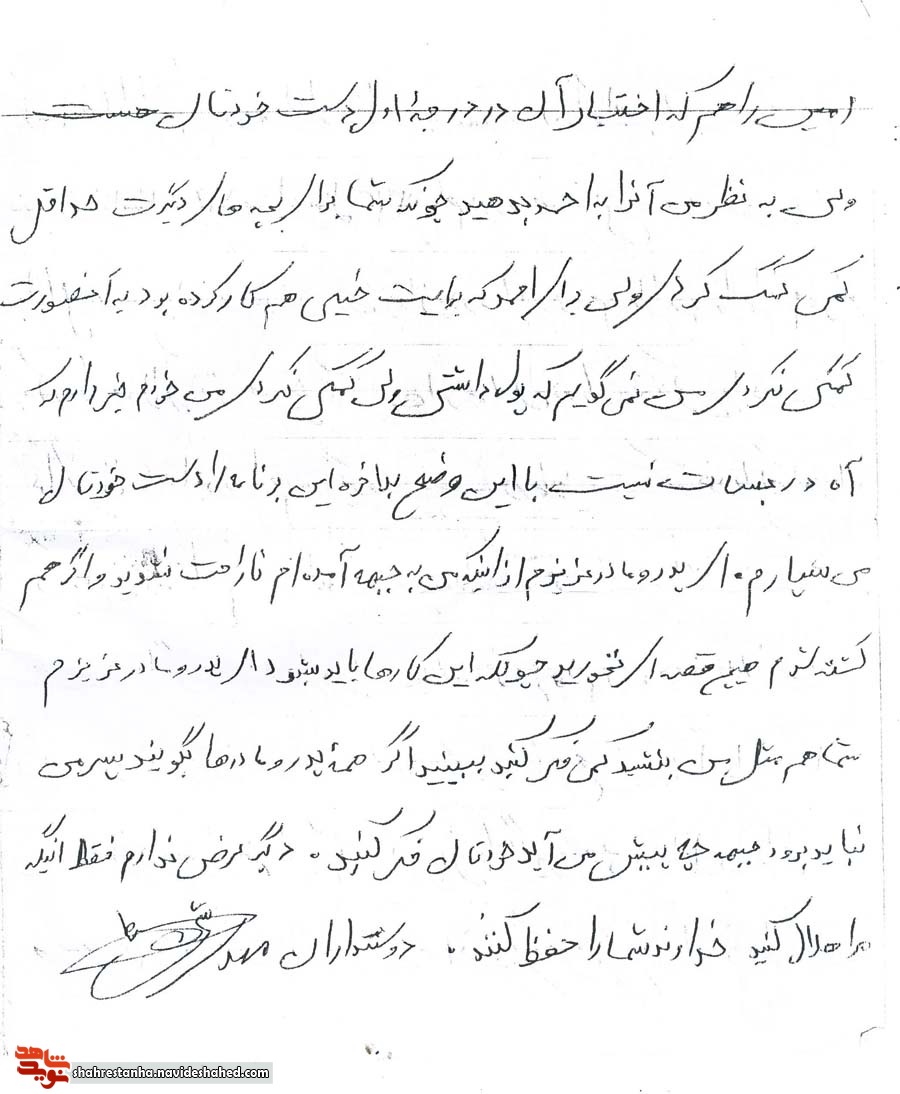 راهم که اختیار آن در درجهٔ اول دست خودتان هست
ولی به نظر من آنرا به احمد بدهید چونکه شما برای بچه های دیگرت حداقل
کمی کمک کردی ولی برای احمد که برایت خیلی هم کار کرده بود به آنصورت
کمکی نکردی من نمی گویم که پول داشتی ولی کمکی نکردی من خودم خبر دارم که
آه در بساطت نیست با این وضع بالاخره این برنامه را دست خودتان
می سپارم . ای پدر و مادر عزیزم از اینکه من به جبهه آمده ام ناراحت نشوید و اگر هم
کشته شدم هیچ غصه ای نخورید چونکه این کارها باید بشود ای پدر و مادر عزیزم
شما هم بنشینید کمی فکر کنید ببینید اگر همهٔ پدر و مادرها بگویند پسر من
نباید برود جبهه چه پیش می آید خودتان فکر کنید . دیگر عرض ندارم فقط اینکه
مرا حلال کنید خداوند شما را حفظ کند . دوستداران مهدی
شاهد
نوید
shahrestanha.navideshahed.com